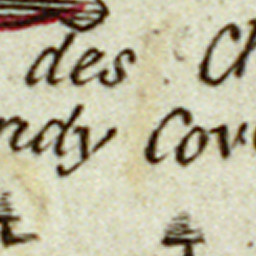 des Ch
ndy Cov